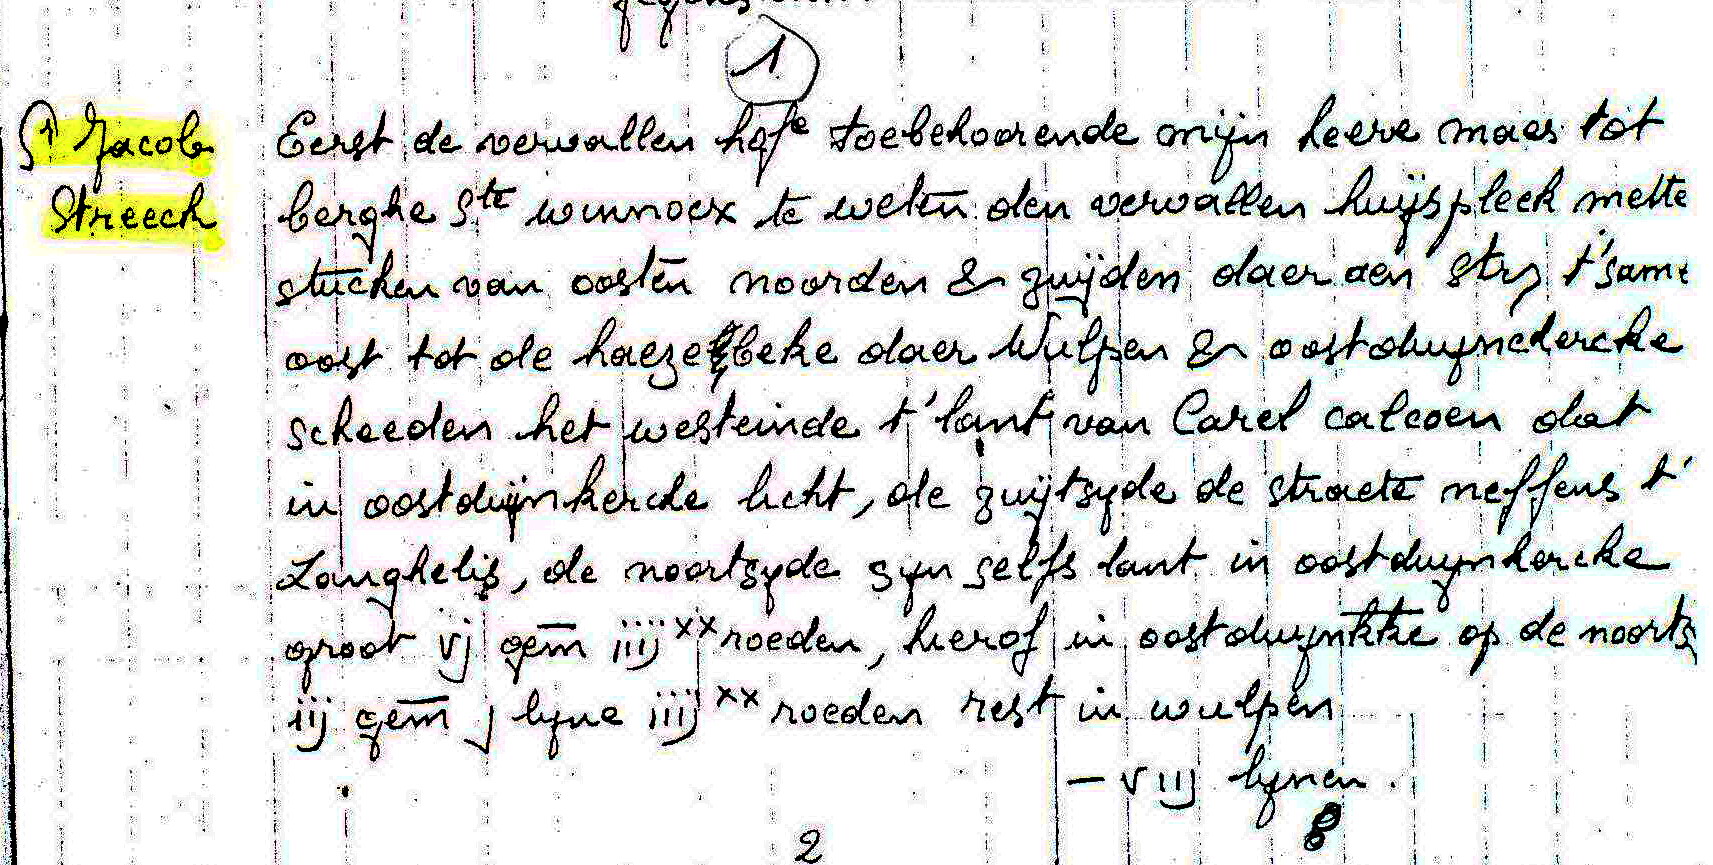 1
St Jacob Eerst de vervallen hofe toebehoorende mijn heere maes tot
Streeck berghe Ste winnocx te weten den vervallen huijspleck mette
stucken van oosten noorden & zuijden daer aen t'sam
oost tot de haezebeke daer Wulpen & oostduynckercke
scheeden het westeinde t'lant van Carel calcoen dat
in oostduijnkercke licht, de zuijtsyde de straete neffens t'
Langhelis, de noortsyde syn selfs lant in oostduynkercke
groot vj gem iiij xx roeden, hierof in oostduynkke op de noorts
iij gem j lyne iiij xx roeden rest in wulpen
— vij lynen.
8
2